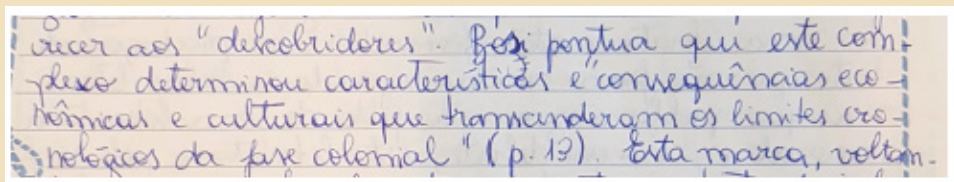 recer aos "descobridores". Bosi pontua qui este com-
plexo determinou características e "consequências eco-
nômicas e culturais que transcenderam os limites cro-
nológicos da fase colonial" (p. 19). Esta marca, voltan-